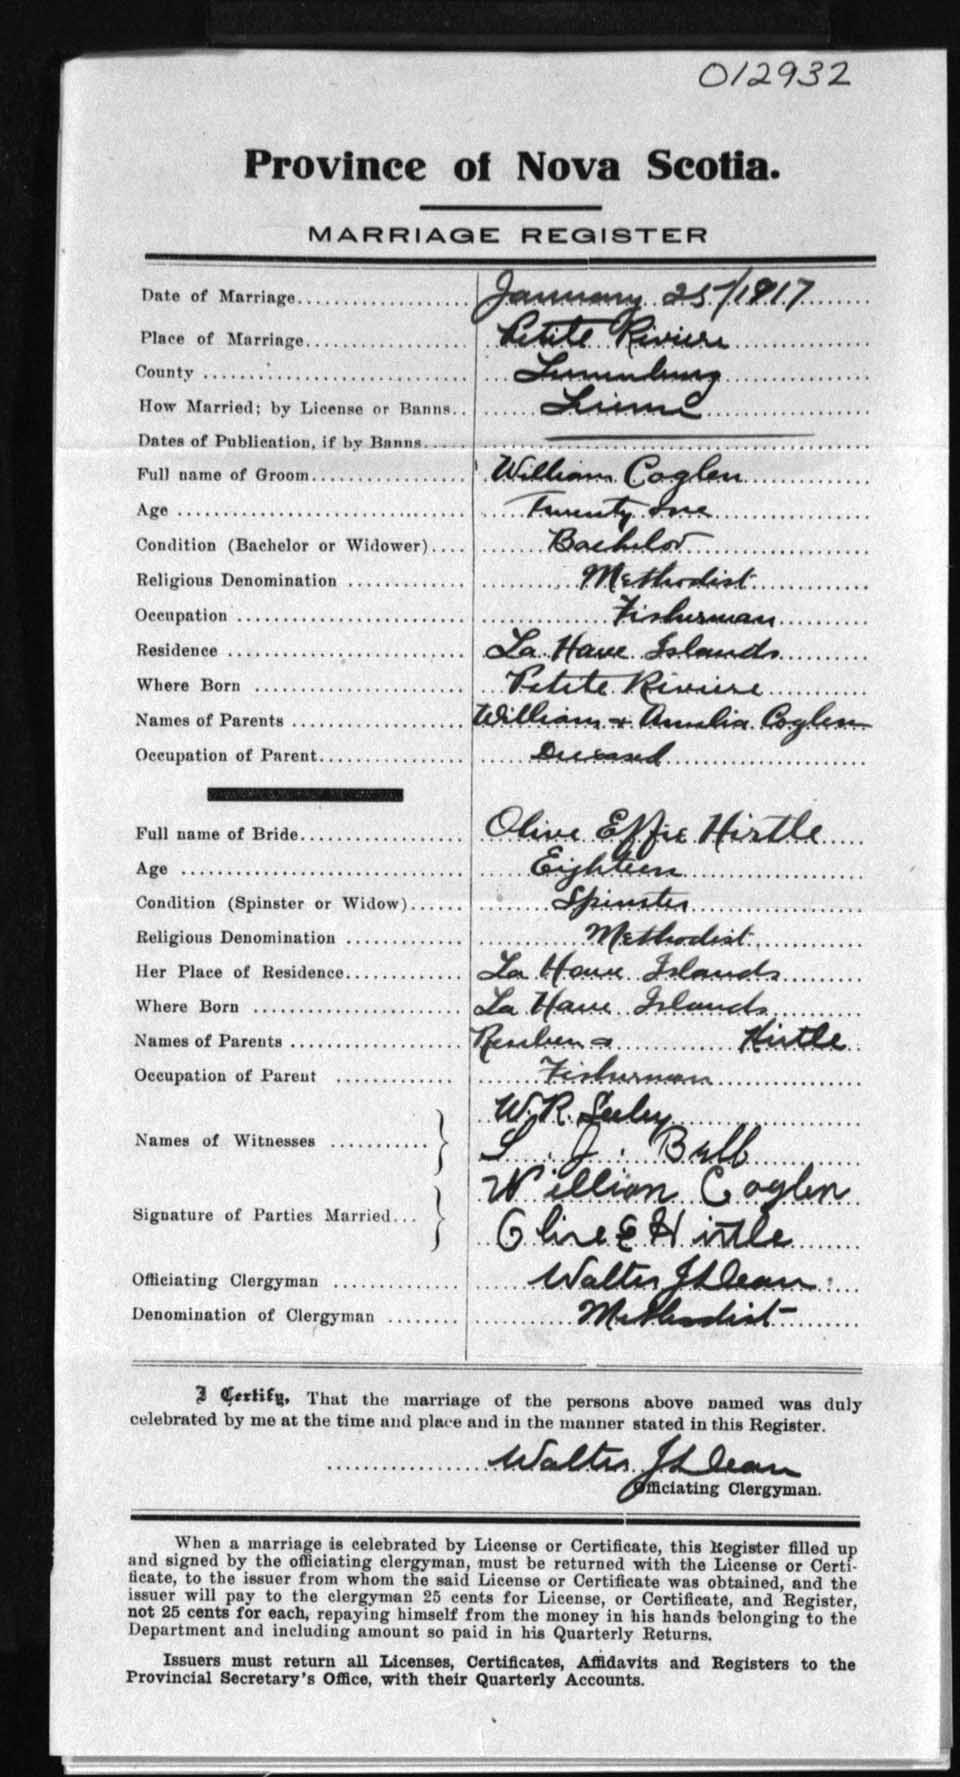 012932
Province of Nova Scotia.
MARRIAGE REGISTER
Date of Marriage.................. January 25/1917
Place of Marriage.................. Petite Riviere
County .................. Lunenburg
How Married; by License or Banns.. License
Dates of Publication, if by Banns.....
Full name of Groom.................. William Coglen
Age .................. Twenty One
Condition (Bachelor or Widower).... Bachelor
Religious Denomination ............ Methodist
Occupation .................. Fisherman
Residence .................. La Have Islands
Where Born .................. Petite Riviere
Names of Parents .................. William & Amelia Coglen
Occupation of Parent.................. Deceased
Full name of Bride.................. Olive Effie Hirtle
Age .................. Eighteen
Condition (Spinster or Widow)...... Spinster
Religious Denomination ............ Methodist
Her Place of Residence............ La Have Islands
Where Born .................. La Have Islands
Names of Parents .................. Reuben & Hirtle
Occupation of Parent ............ Fisherman
W. R. Seeley
Names of Witnesses ...........
S. J. Bell
William Coglen
Signature of Parties Married...
Olive E Hirtle
Officiating Clergyman ............ Walter J Dean
Denomination of Clergyman ........ Methodist
I Certify, That the marriage of the persons above named was duly
celebrated by me at the time and place and in the manner stated in this Register.
Walter J Dean
Officiating Clergyman.
When a marriage is celebrated by License or Certificate, this Register filled up
and signed by the officiating clergyman, must be returned with the License or Certi-
ficate, to the issuer from whom the said License or Certificate was obtained, and the
issuer will pay to the clergyman 25 cents for License, or Certificate, and Register,
not 25 cents for each, repaying himself from the money in his hands belonging to the
Department and including amount so paid in his Quarterly Returns.
Issuers must return all Licenses, Certificates, Affidavits and Registers to the
Provincial Secretary's Office, with their Quarterly Accounts.